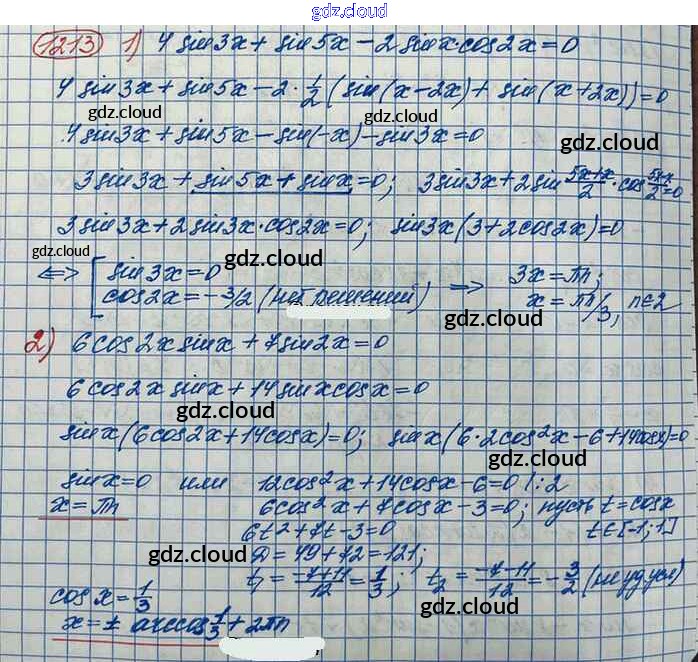 gdz.cloud
1213 1) 4 sin3x + sin5x - 2 sinx·cos2x = 0
4 sin3x + sin5x - 2·1/2 (sin(x-2x) + sin(x+2x)) = 0
gdz.cloud
4 sin3x + sin5x - sin(-x) - sin3x = 0
gdz.cloud
3 sin3x + sin5x + sinx = 0; 3 sin3x + 2 sin (5x+x)/2 · cos (5x-x)/2 = 0
gdz.cloud gdz.cloud
3 sin3x + 2 sin3x·cos2x = 0; sin3x(3+2cos2x) = 0
gdz.cloud gdz.cloud
⇔ [ sin3x = 0 ⇒ 3x = πn;
cos2x = -3/2 (нет решений) x = πn/3, n∈Z
gdz.cloud
2) 6 cos2x sinx + 7 sin2x = 0
6 cos2x sinx + 14 sinx cosx = 0
gdz.cloud
sinx(6cos2x + 14cosx) = 0; sinx(6·2cos²x - 6 + 14cosx) = 0
gdz.cloud
sinx = 0 или 12cos²x + 14cosx - 6 = 0 /:2
x = πn 6cos²x + 7cosx - 3 = 0; пусть t = cosx
6t² + 7t - 3 = 0 t∈[-1;1]
gdz.cloud gdz.cloud
D = 49 + 72 = 121;
t₁ = (-7+11)/12 = 1/3; t₂ = (-7-11)/12 = -3/2 (не уд усл)
cosx = 1/3
gdz.cloud
x = ± arccos 1/3 + 2πn
gdz.cloud